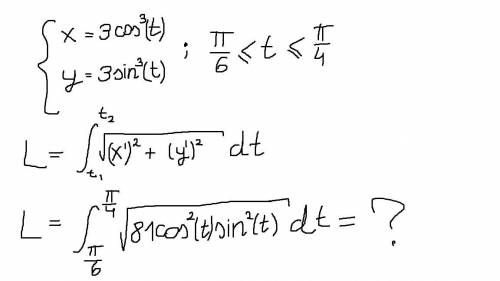 { x = 3cos³(t)
{ y = 3sin³(t) ; π/6 ⩽ t ⩽ π/4
L = ∫_{t₁}^{t₂} √((x')² + (y')²) dt
L = ∫_{π/6}^{π/4} √(81cos²(t)sin²(t)) dt = ?